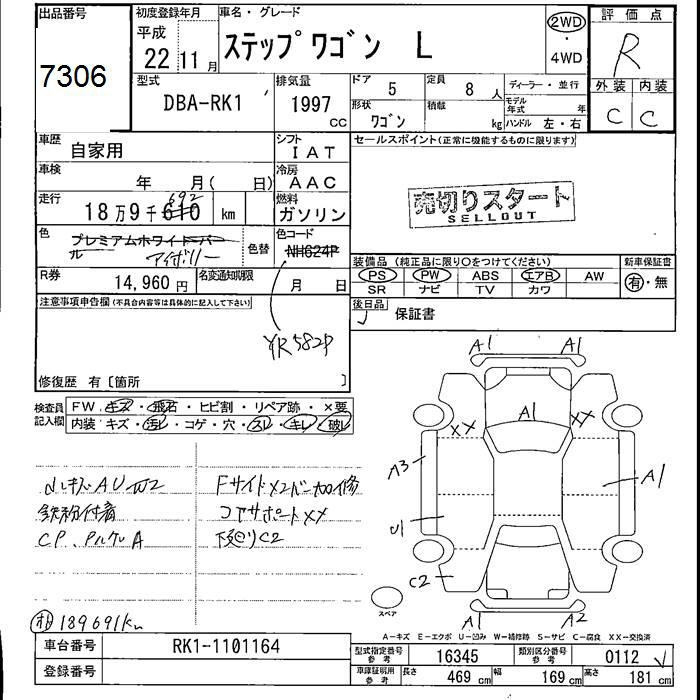 出品番号
7306
初度登録年月
平成
22 11月
車名・グレード
ステップ ワゴン L
2WD
・
4WD
評価点
R
外装 内装
C C
型式
DBA-RK1
排気量
1997
CC
ドア 5
定員 8 人
形状 ワゴン
積載 kg
ディーラー・並行
モデル年式 年
ハンドル 左・右
車歴
自家用
シフト
IAT
車検
年 月( 日)
冷房
AAC
走行
18万9千610 km
692
燃料
ガソリン
色
プレミアムホワイトパール
アイボリー
色替
色コード
NH624P
YR582P
R券
14,960円
名変通知期限
月 日
セールスポイント(正常に機能するものに限ります)
売切りスタート
SELLOUT
装備品 (純正品に限り○をつけてください)
PS PW ABS エアB AW
SR ナビ TV カワ
新車保証書
有・無
後日品
✓ 保証書
注意事項申告欄(不具合内容等は具体的に記入して下さい)
修復歴 有〔箇所 〕
検査員記入欄
FW.キズ・飛石・ヒビ割・リペア跡・×要
内装:キズ・汚レ・コゲ・穴・スレ・キレ・破レ
鉄粉付着
A1
A1
XX
XX
A3
A1
U1
C2
A1
A2
スペア
189691km
A−キズ E−エクボ U−凹み W−補修跡 S−サビ C−腐食 XX−交換済
車台番号
RK1-1101164
登録番号
型式指定番号 参考
16345
類別区分番号 参考
0112 ✓
車庫証明用 参考
長さ 469 cm
幅 169 cm
高さ 181 cm